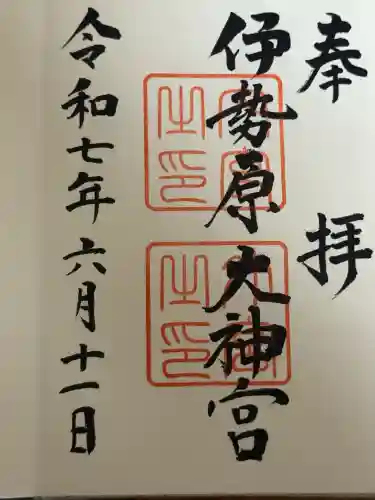 奉拝
伊勢原大神宮
令和七年六月十一日